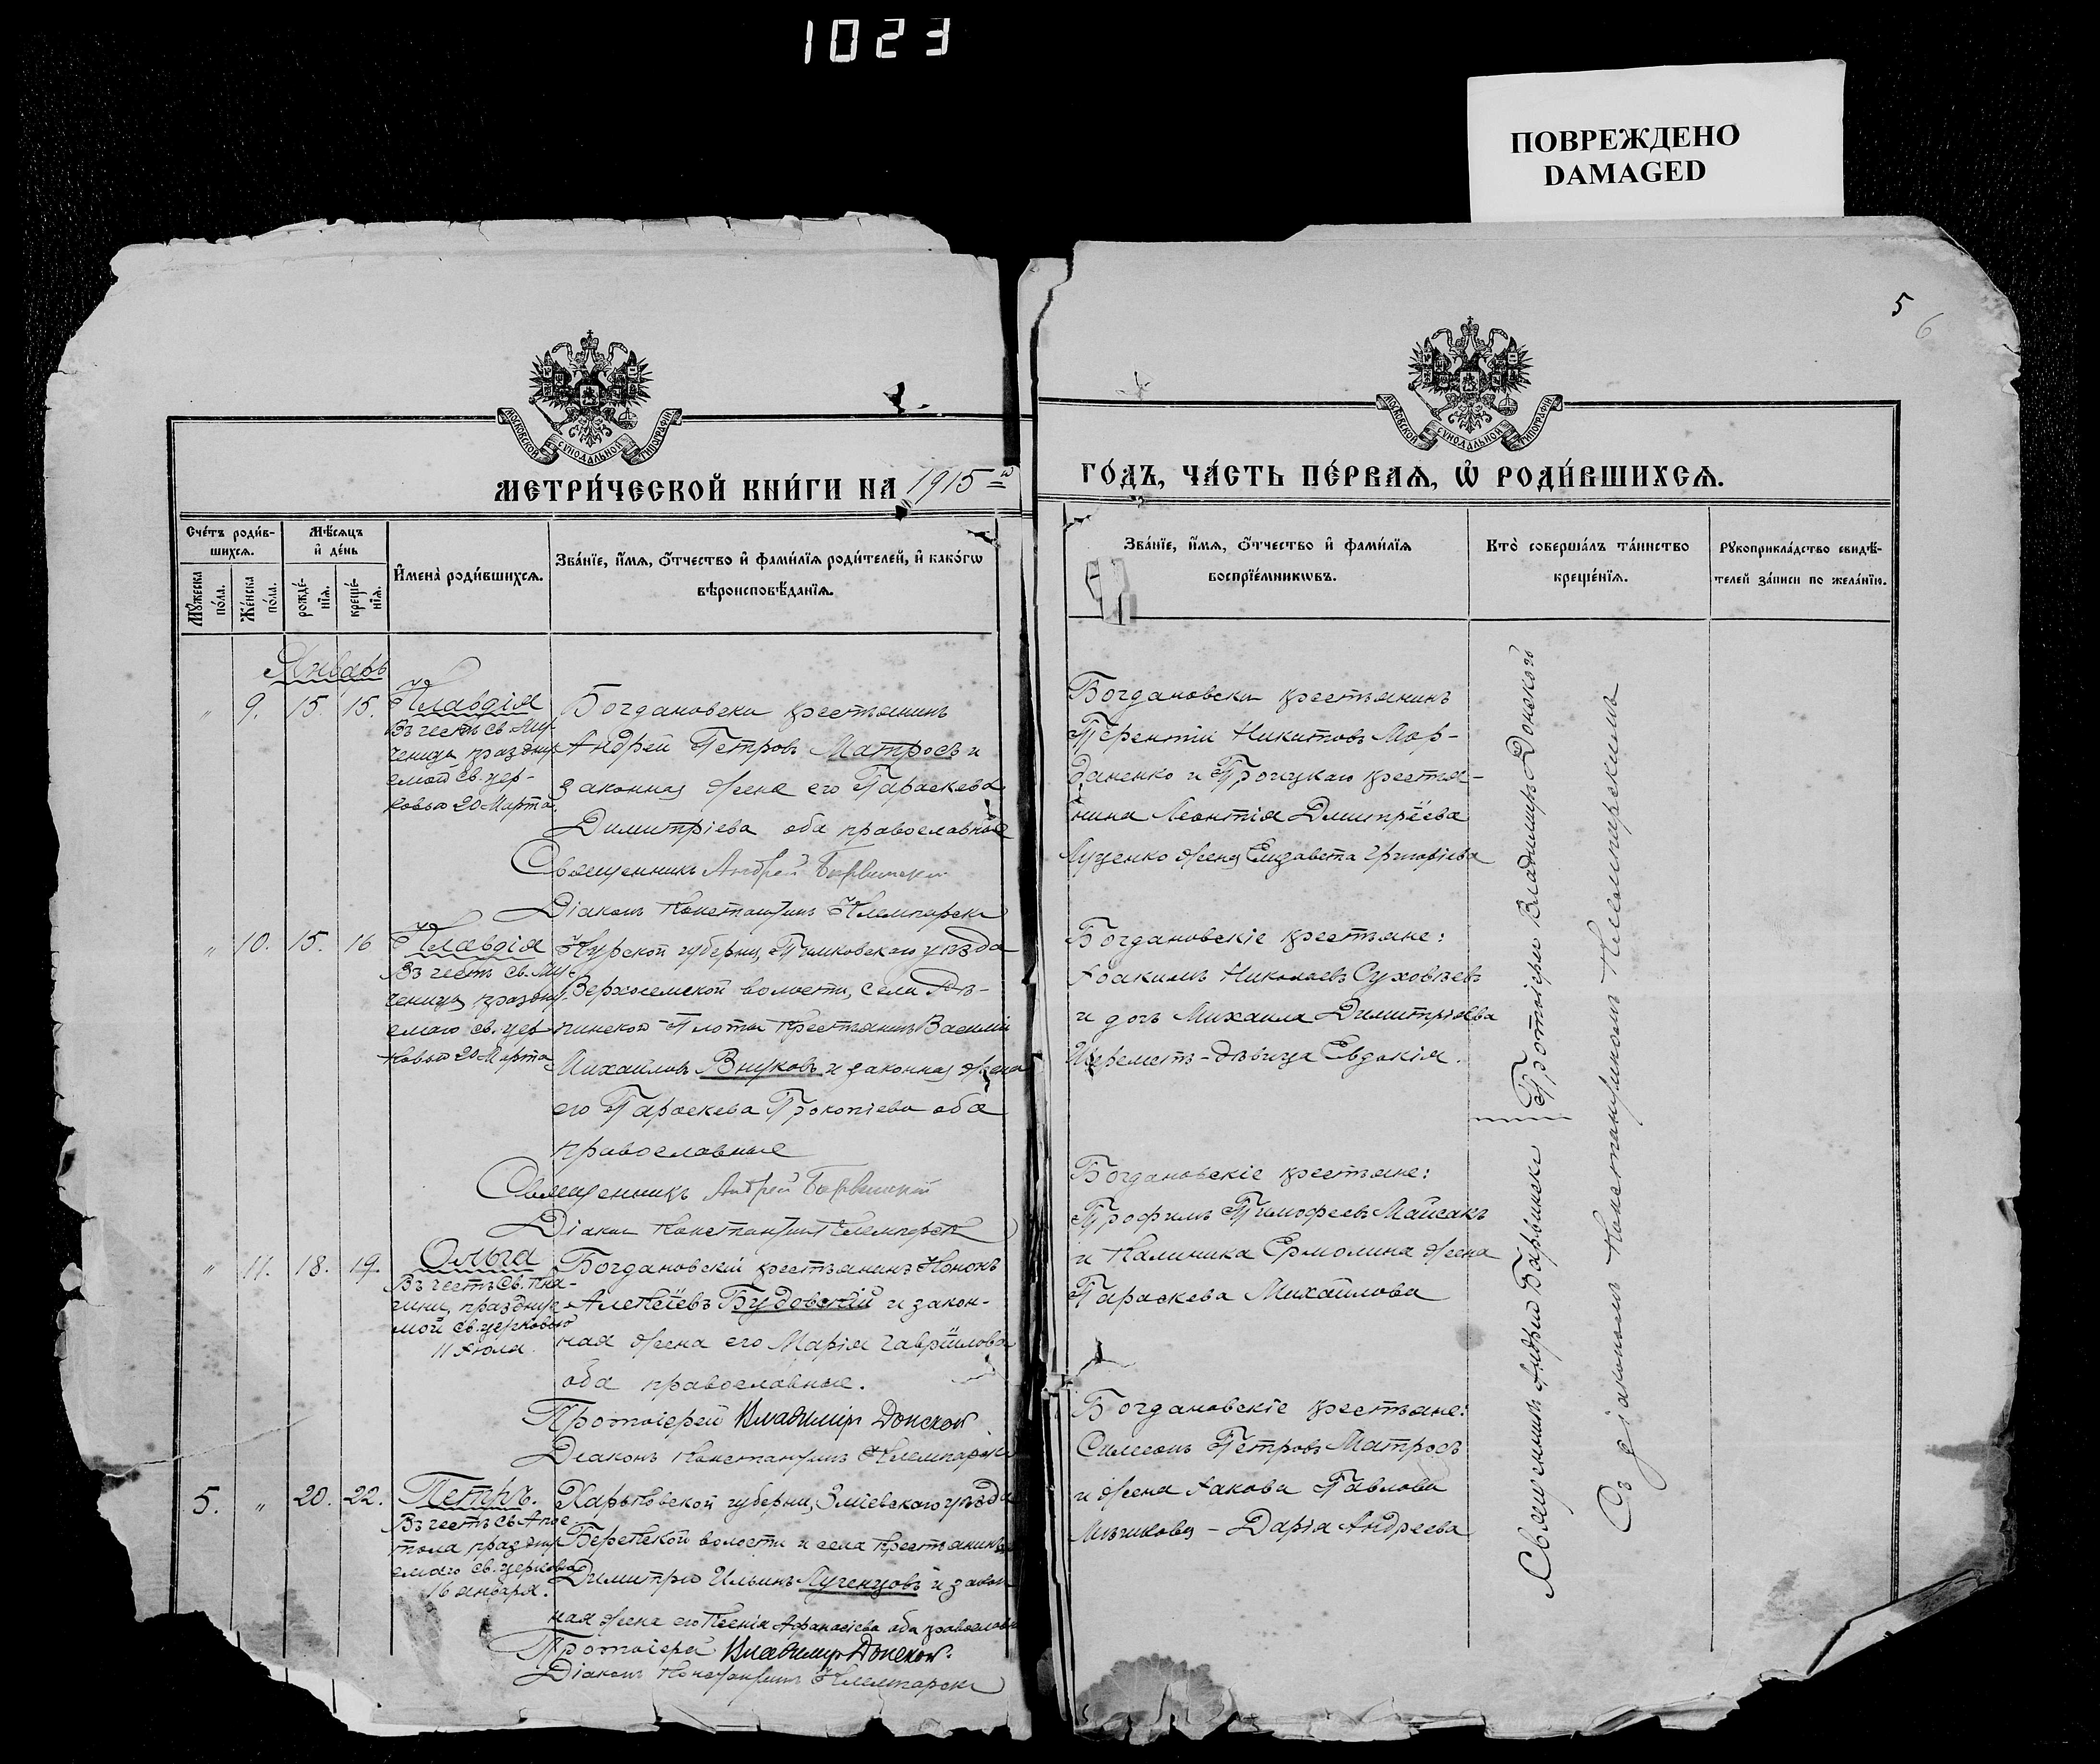 1023
ПОВРЕЖДЕНО
DAMAGED
5
6
МОСКОВСКОЙ СУНОДАЛЬНОЙ ТИПОГРАФІИ
МОСКОВСКОЙ СУНОДАЛЬНОЙ ТИПОГРАФІИ
МЕТРИ́ЧЕСКОЙ КНИ́ГИ НА 1915 й
ГО́ДЪ, ЧА́СТЬ ПЕ́РВАѦ, Ѿ РОДИ́ВШИХСѦ.
Сче́тъ роди́в-
шихсѧ.
Мѣ́сѧцъ
и҆ де́нь
Мꙋ́жеска
по́ла.
Же́нска
по́ла.
рожде́-
нїѧ.
креще́-
нїѧ.
И҆мена̀ роди́вшихсѧ.
Зва́нїе, и҆́мѧ, ѻ҆́тчество и҆ фами́лїѧ роди́телей, и҆ како́гѡ
вѣроисповѣ́данїѧ.
Зва́нїе, и҆́мѧ, ѻ҆́тчество и҆ фами́лїѧ
воспрїе́мникѡвъ.
Кто̀ соверша́лъ та́инство
креще́нїѧ.
Рꙋкоприкла́дство свидѣ́-
телей за́писи по жела́нїю.
Январь
" 9. 15. 15.
Клавдія
Въ честь св. Му-
ченицы праздну-
емой св. цер-
ковью 20 Марта.
Богдановски крестьянинъ
Андрей Петровъ Матросъ и
законная жена его Параскева
Димитріева оба православные
Священникъ Андрей Барвинскій
Діаконъ Константинъ Клемпарскі
Богдановски крестьянинъ
Терентій Никитовъ Мор-
даненко и Троицкаго крестья-
нина Леонтія Дмитріева
Луценко жена Елизавета Григоріева
" 10. 15. 16
Клавдія
Въ честь св. Му-
ченицы праздну-
емаго св. цер-
ковью 20 Марта
Курской губерніи, Тимковскаго уѣзда
Верхосемской волости, села
Плоты крестьянинъ Василій
Михаиловъ Внуковъ и законная жена
его Параскева Прокопіева оба
православные
Священникъ Андрей Барвинскій
Діаконъ Константинъ Клемпарск
Богдановскіе крестьяне:
Іоакимъ Николаевъ Суховѣевъ
и дочь Михаила Димитріева
Шереметъ - дѣвица Евдокія.
" 11. 18. 19.
Ольга
Въ честь Св. Кня-
гини, праздну-
мой св. церковью
11 Іюля.
Богдановскій крестьянинъ Кононъ
Алексѣевъ Будовскій и закон-
ная жена его Марія Гавріилова
оба православные.
Протоіерей Владиміръ Донской
Діаконъ Константинъ Клемпарскі
Богдановскіе крестьяне:
Трофимъ Тимофеевъ Майсакъ
и Калиника Ермолина жена
Параскева Михайлова
5. " 20. 22.
Петръ.
Въ честь св. Апос-
тола праздну-
емаго св. церковью
16 января.
Харьковской губерніи, Зміевскаго уѣзда
Берекской волости и села крестьянинъ
Димитрій Ильинъ Лученцовъ и закон
ная жена его Ксенія Афанасіева оба православн
Протоіерей Владиміръ Донской.
Діаконъ Константинъ Клемпарскі
Богдановскіе крестьяне:
Симеонъ Петровъ Матросъ
и жена Іакова Павлова
Дарія Андреева
Священникъ Андрей Барвинскі
Протоіерей Владиміръ Донской
Съ діакономъ Константиномъ Клемпарскимъ